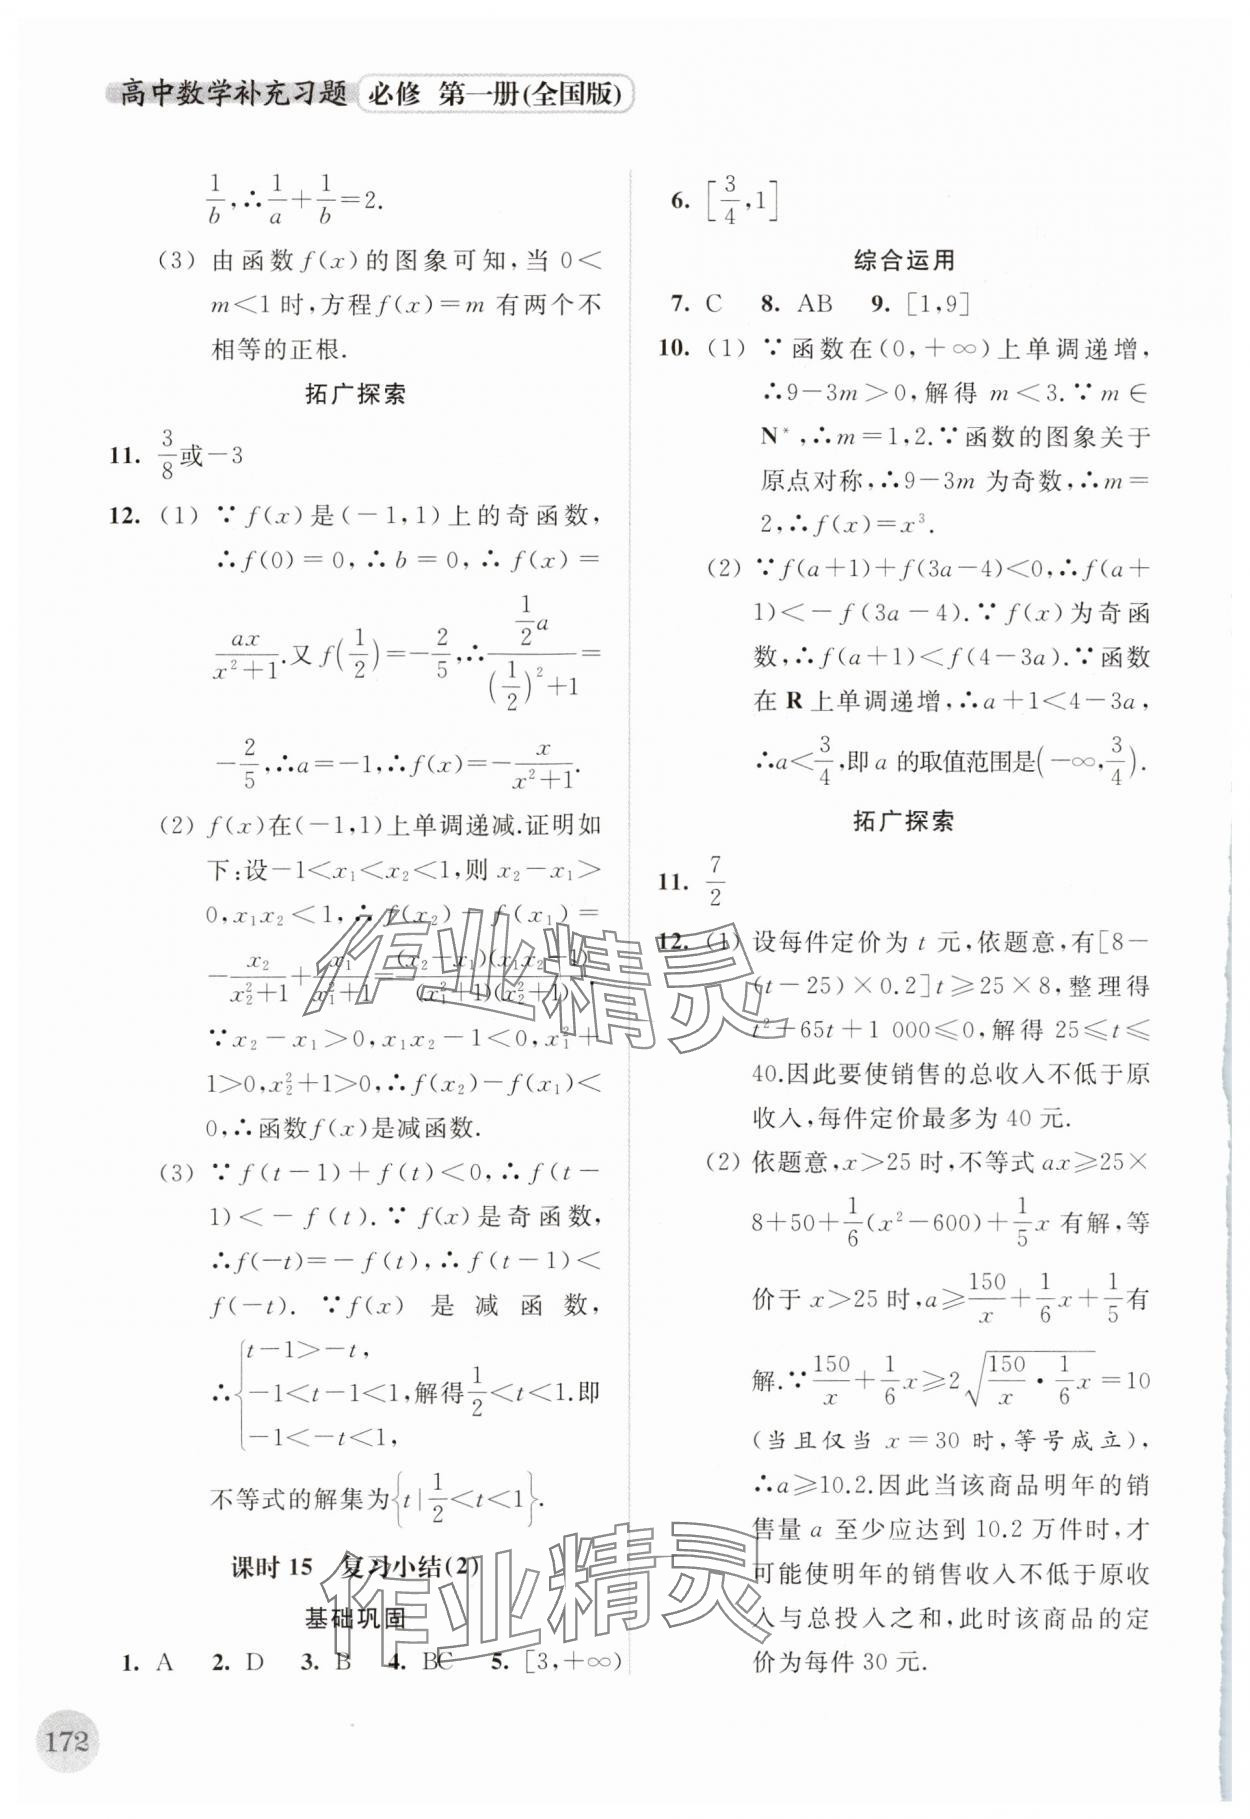 高中数学补充习题 必修 第一册(全国版)
1/b,∴1/a+1/b=2.
(3) 由函数f(x)的图象可知,当0<
m<1时,方程f(x)=m有两个不
相等的正根.
拓广探索
11. 3/8或-3
12. (1) ∵f(x)是(-1,1)上的奇函数,
∴f(0)=0,∴b=0,∴f(x)=
ax/(x²+1).又f(1/2)=-2/5,∴(1/2 a)/((1/2)²+1)=
-2/5,∴a=-1,∴f(x)=-x/(x²+1).
(2) f(x)在(-1,1)上单调递减.证明如
下:设-1<x₁<x₂<1,则x₂-x₁>
0,x₁x₂<1,∴f(x₂)-f(x₁)=
-x₂/(x₂²+1)+x₁/(x₁²+1)=(x₂-x₁)(x₁x₂-1)/(x₁²+1)(x₂²+1).
∵x₂-x₁>0,x₁x₂-1<0,x₁²+
1>0,x₂²+1>0,∴f(x₂)-f(x₁)<
0,∴函数f(x)是减函数.
(3) ∵f(t-1)+f(t)<0,∴f(t-
1)<-f(t).∵f(x)是奇函数,
∴f(-t)=-f(t),∴f(t-1)<
f(-t).∵f(x)是减函数,
∴{t-1>-t,
-1<t-1<1,解得1/2<t<1.即
-1<-t<1,
不等式的解集为{t|1/2<t<1}.
课时15 复习小结(2)
基础巩固
1. A 2. D 3. B 4. BC 5. [3,+∞)
172
6. [3/4,1]
综合运用
7. C 8. AB 9. [1,9]
10. (1) ∵函数在(0,+∞)上单调递增,
∴9-3m>0,解得m<3.∵m∈
N*,∴m=1,2.∵函数的图象关于
原点对称,∴9-3m为奇数,∴m=
2,∴f(x)=x³.
(2) ∵f(a+1)+f(3a-4)<0,∴f(a+
1)<-f(3a-4).∵f(x)为奇函
数,∴f(a+1)<f(4-3a).∵函数
在R上单调递增,∴a+1<4-3a,
∴a<3/4,即a的取值范围是(-∞,3/4).
拓广探索
11. 7/2
12. (1) 设每件定价为t元,依题意,有[8-
(t-25)×0.2]t≥25×8,整理得
t²-65t+1 000≤0,解得25≤t≤
40.因此要使销售的总收入不低于原
收入,每件定价最多为40元.
(2) 依题意,x>25时,不等式ax≥25×
8+50+1/6(x²-600)+1/5x有解,等
价于x>25时,a≥150/x+1/6x+1/5有
解.∵150/x+1/6x≥2√(150/x·1/6x)=10
(当且仅当x=30时,等号成立),
∴a≥10.2.因此当该商品明年的销
售量a至少应达到10.2万件时,才
可能使明年的销售收入不低于原收
入与总投入之和,此时该商品的定
价为每件30元.
作业精灵
作业精灵